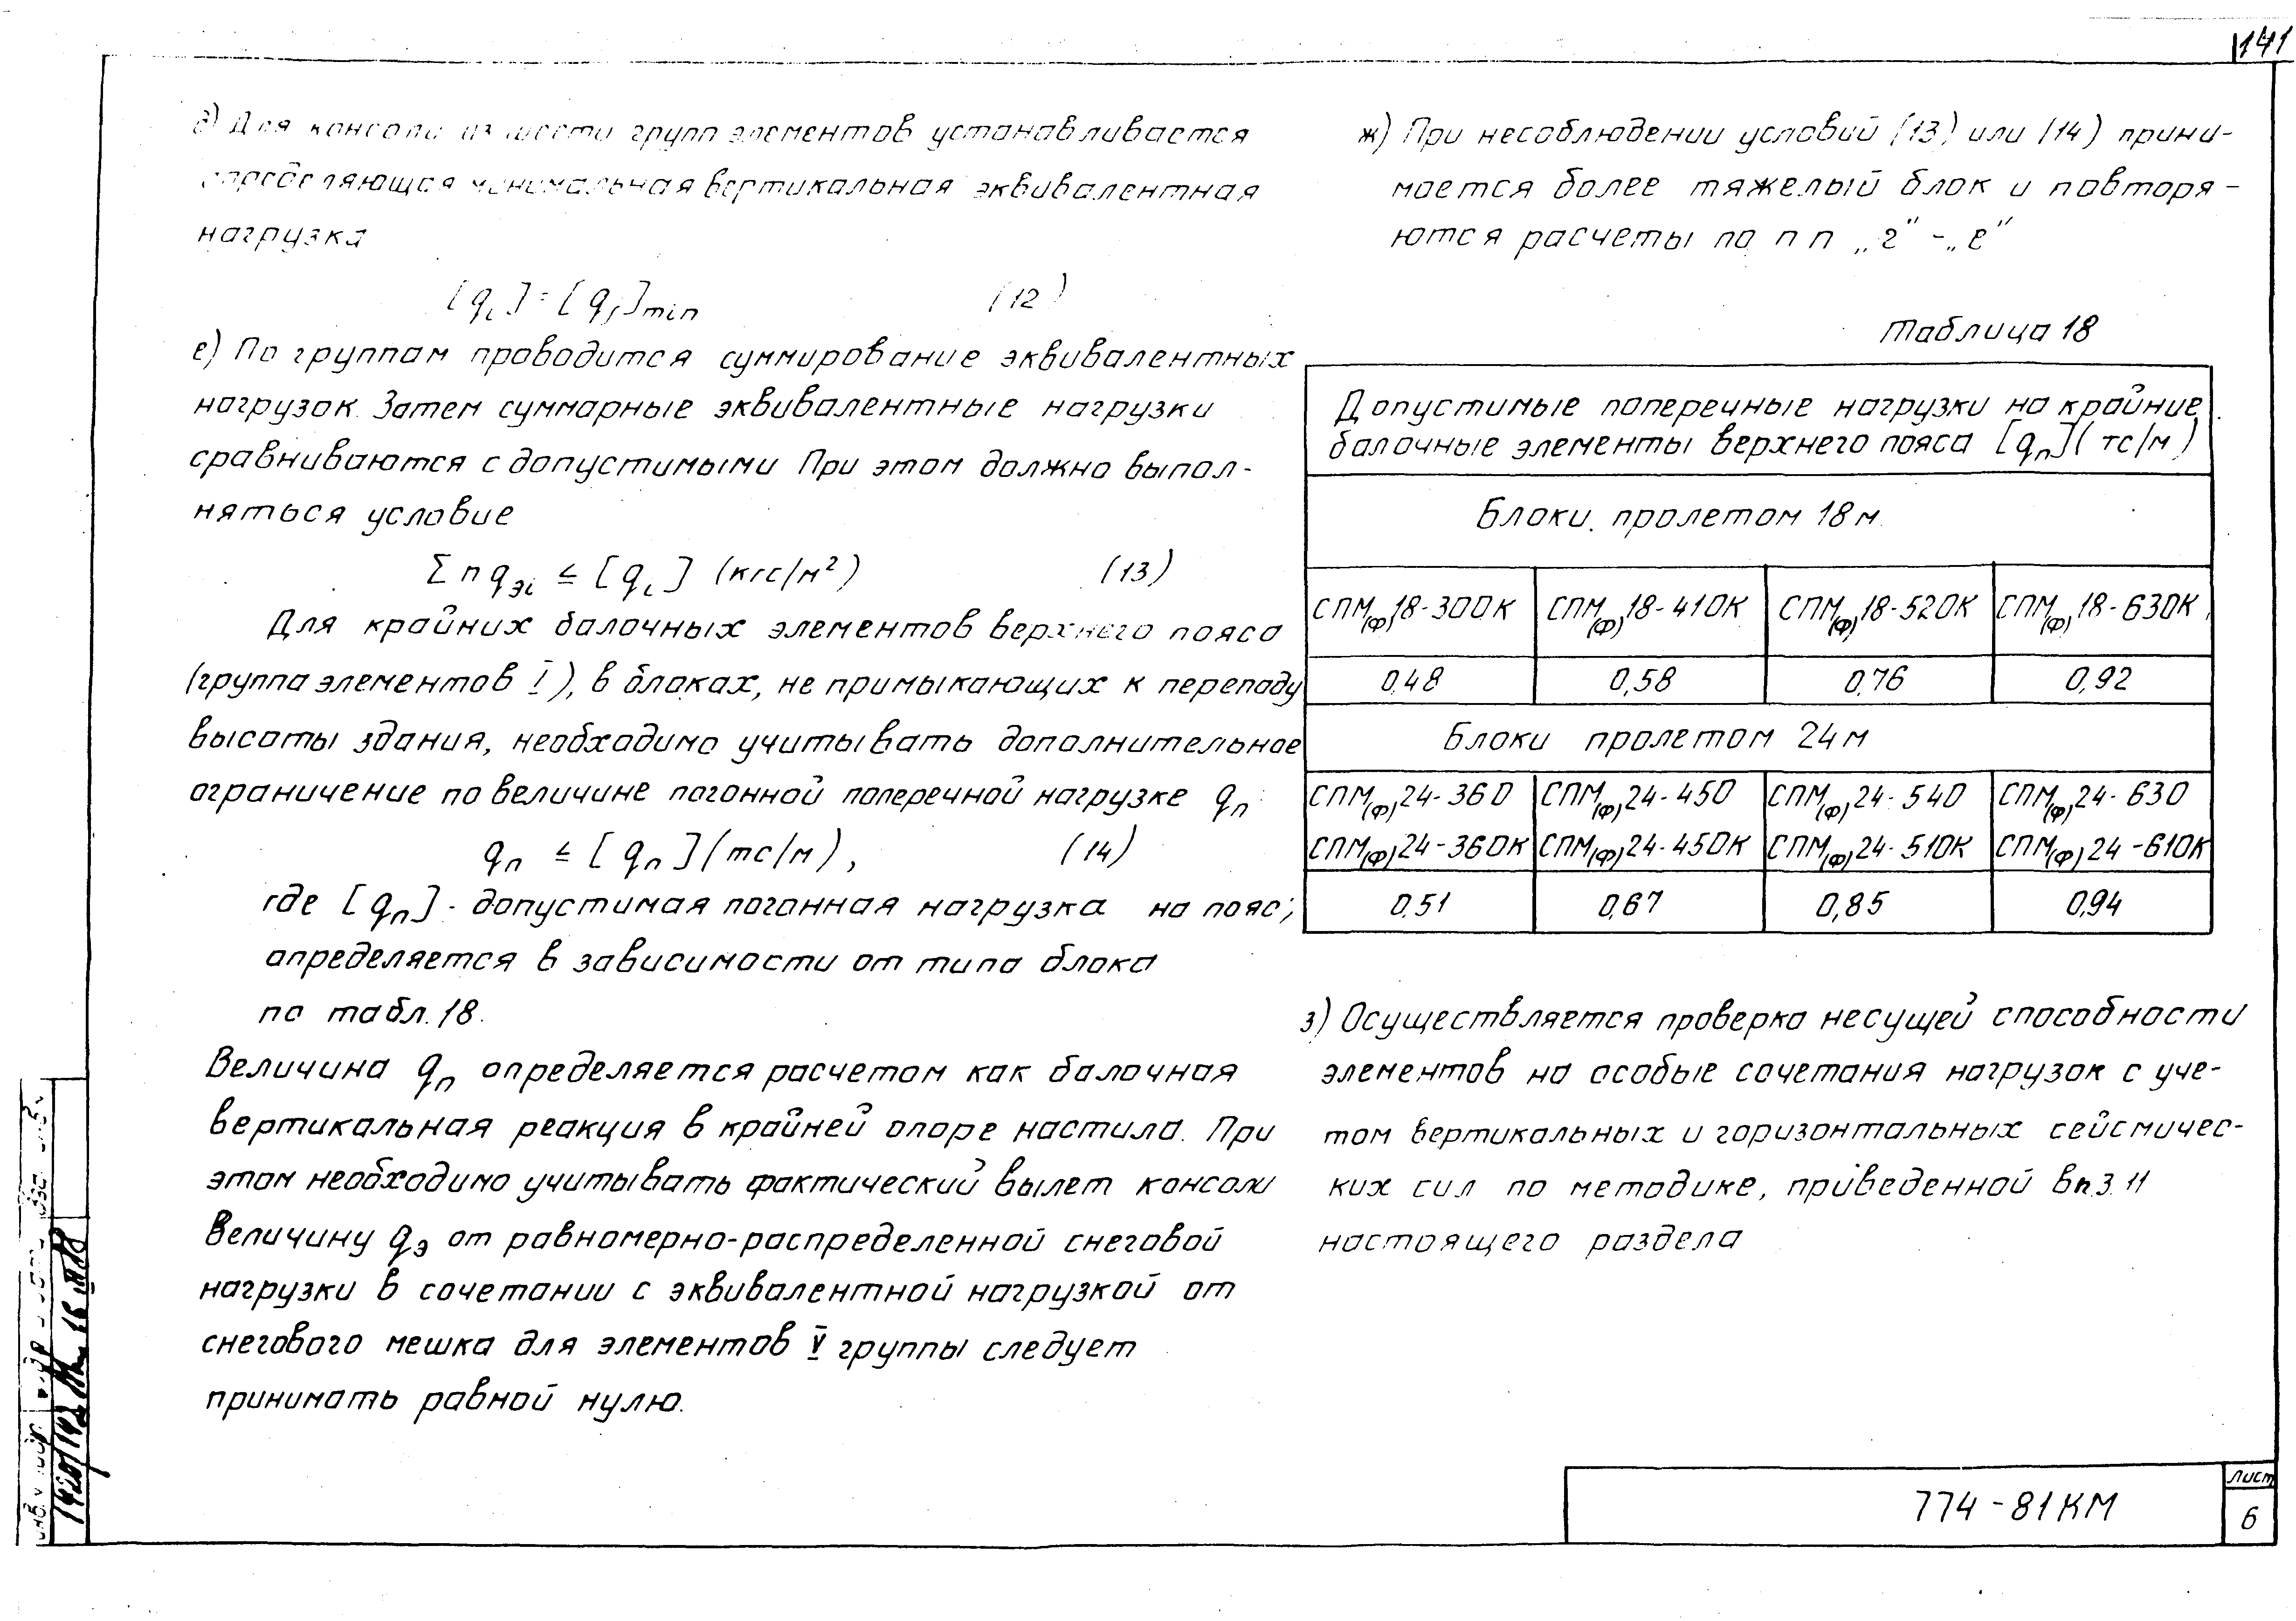 141
д) Для консоли из шести групп элементов устанавливается
определяющая минимальная вертикальная эквивалентная
нагрузка
[qi] = [qi]min (12)
е) По группам проводится суммирование эквивалентных
нагрузок. Затем суммарные эквивалентные нагрузки
сравниваются с допустимыми При этом должно выпол-
няться условие
Σ n qэi ≤ [qi] (кгс/м²) (13)
Для крайних балочных элементов верхнего пояса
(группа элементов I), в блоках, не примыкающих к перепаду
высоты здания, необходимо учитывать дополнительное
ограничение по величине погонной поперечной нагрузке qп:
qп ≤ [qп] (тс/м), (14)
где [qп] - допустимая погонная нагрузка на пояс;
определяется в зависимости от типа блока
по табл. 18.
Величина qп определяется расчетом как балочная
вертикальная реакция в крайней опоре настила. При
этом необходимо учитывать фактический вылет консоли
Величину qэ от равномерно-распределенной снеговой
нагрузки в сочетании с эквивалентной нагрузкой от
снегового мешка для элементов V группы следует
принимать равной нулю.
ж) При несоблюдении условий (13) или (14) прини-
мается более тяжелый блок и повторя-
ются расчеты по п п „г" - „е"
Таблица 18
Допустимые поперечные нагрузки на крайние
балочные элементы верхнего пояса [qп] (тс/м)
Блоки пролетом 18м
СПМ(Ф)18-300К СПМ(Ф)18-410К СПМ(Ф)18-520К СПМ(Ф)18-630К
0,48 0,58 0,76 0,92
Блоки пролетом 24м
СПМ(Ф)24-360 СПМ(Ф)24-450 СПМ(Ф)24-540 СПМ(Ф)24-630
СПМ(Ф)24-360К СПМ(Ф)24-450К СПМ(Ф)24-510К СПМ(Ф)24-610К
0,51 0,67 0,85 0,94
з) Осуществляется проверка несущей способности
элементов на особые сочетания нагрузок с уче-
том вертикальных и горизонтальных сейсмичес-
ких сил по методике, приведенной в п.3.11
настоящего раздела
774-81КМ
Лист
6